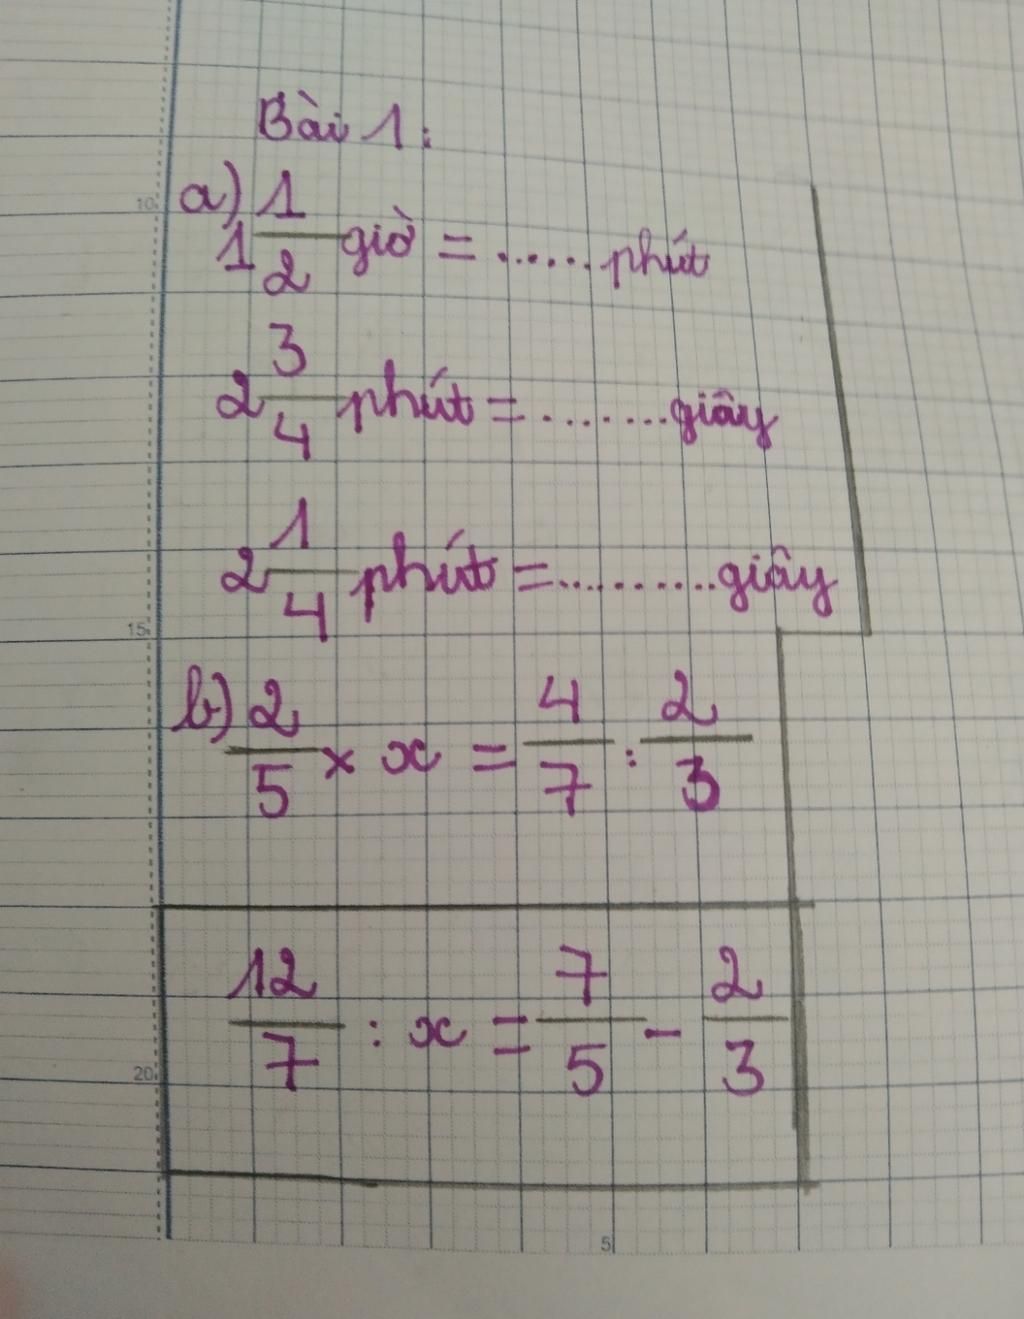 Bài 1:
10
a) 1 1/2 giờ = ...... phút
2 3/4 phút = ........ giây
2 1/4 phút = .......... giây
15
b) 2/5 × x = 4/7 : 2/3
12/7 : x = 7/5 - 2/3
20
5